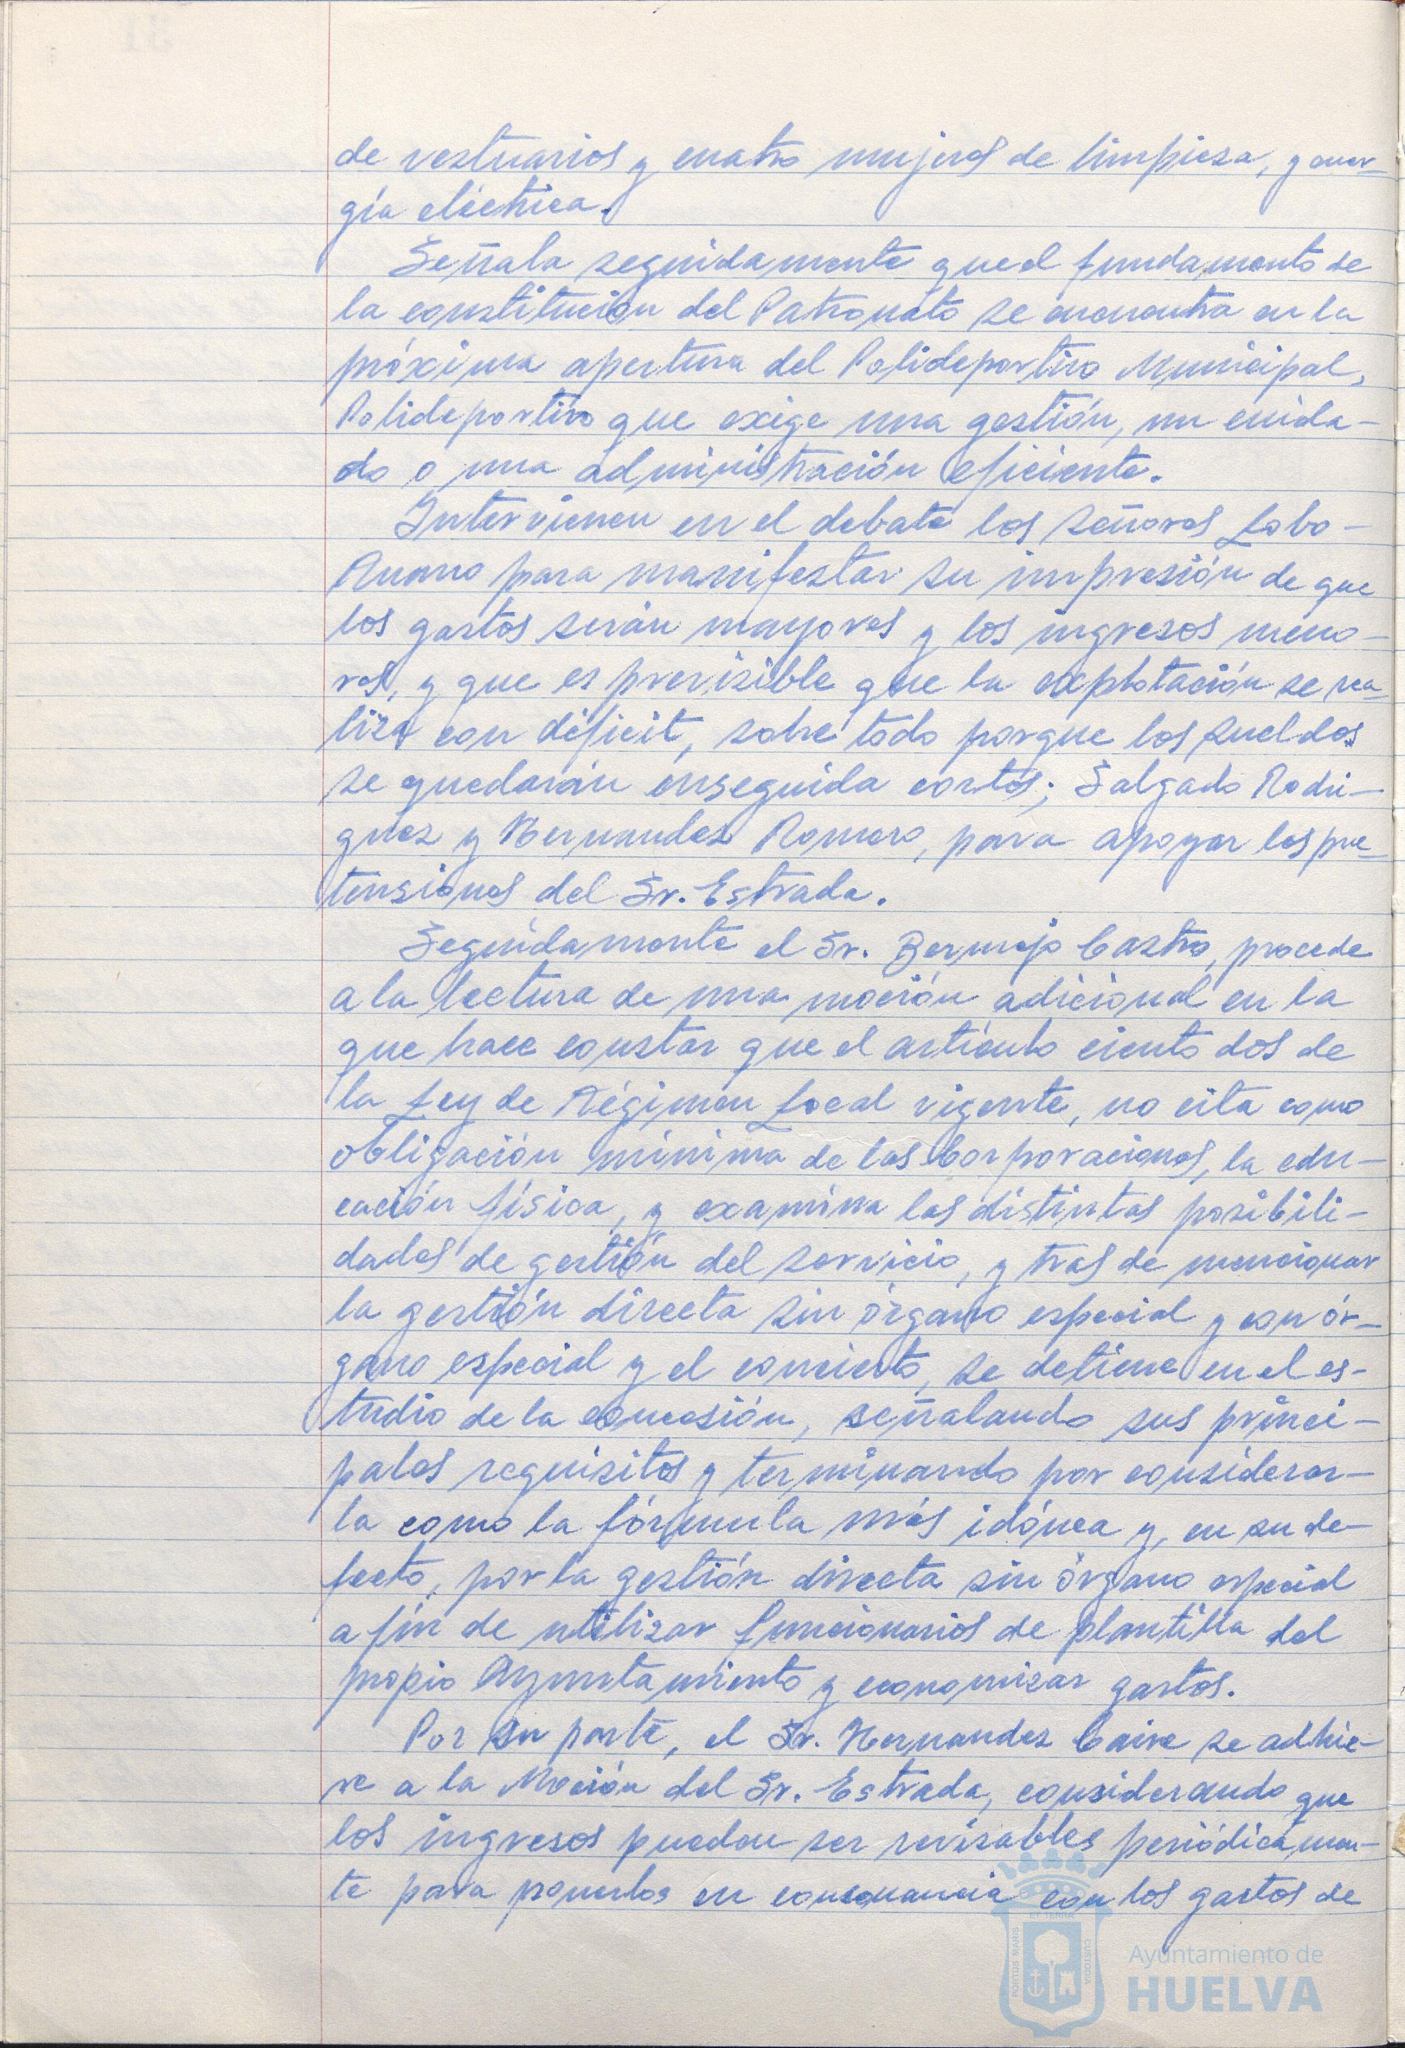 de vestuarios y cuatro mujeres de limpieza, y ener-
gía eléctrica.
Señala seguidamente que el fundamento de
la constitución del Patronato se encuentra en la
próxima apertura del Polideportivo Municipal,
Polideportivo que exige una gestión, un cuida-
do o una administración eficiente.
Intervienen en el debate los señores Lobo-
Ruano para manifestar su impresión de que
los gastos serán mayores y los ingresos meno-
res, y que es previsible que la explotación se rea-
liza con déficit, sobre todo porque los sueldos
se quedarán enseguida cortos; Salgado Rodri-
guez y Hernandez Romero, para apoyar las pre-
tensiones del Sr. Estrada.
Seguidamente el Sr. Bermejo Castro, procede
a la lectura de una moción adicional en la
que hace constar que el artículo ciento dos de
la Ley de Régimen Local vigente, no cita como
obligación mínima de las Corporaciones, la edu-
cación física, y examina las distintas posibili-
dades de gestión del servicio, y tras de mencionar
la gestión directa sin órgano especial y con ór-
gano especial y el concierto, se detiene en el es-
tudio de la concesión, señalando sus princi-
pales requisitos y terminando por considerar-
la como la fórmula más idónea y, en su de-
fecto, por la gestión directa sin órgano especial
a fin de utilizar funcionarios de plantilla del
propio Ayuntamiento y economizar gastos.
Por su parte, el Sr. Hernandez Caire se adhie-
re a la Moción del Sr. Estrada, considerando que
los ingresos pueden ser revisables periódicamen-
te para ponerlos en consonancia con los gastos de
PORTUS MARIS
ET TERRAE
CUSTODIA
Ayuntamiento de
HUELVA